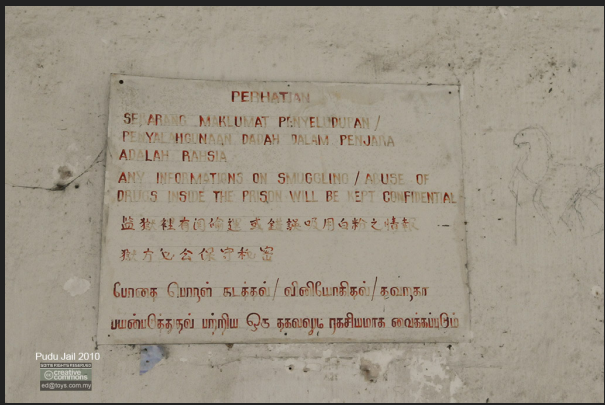 PERHATIAN
SEBARANG MAKLUMAT PENYELUDUPAN /
PENYALAHGUNAAN DADAH DALAM PENJARA
ADALAH RAHSIA
ANY INFORMATIONS ON SMUGGLING / ABUSE OF
DRUGS INSIDE THE PRISON WILL BE KEPT CONFIDENTIAL
監獄裡有関偷運或錯誤吸用白粉之情報
獄方必公保守秘密
போதை பொருள் கடத்தல் / வினியோகித்தல் / தவறாக
பயன்படுத்துதல் பற்றிய ஒரு தகவலும் ரகசியமாக வைக்கப்படும்
Pudu Jail 2010
creative
commons
ed@toys.com.my